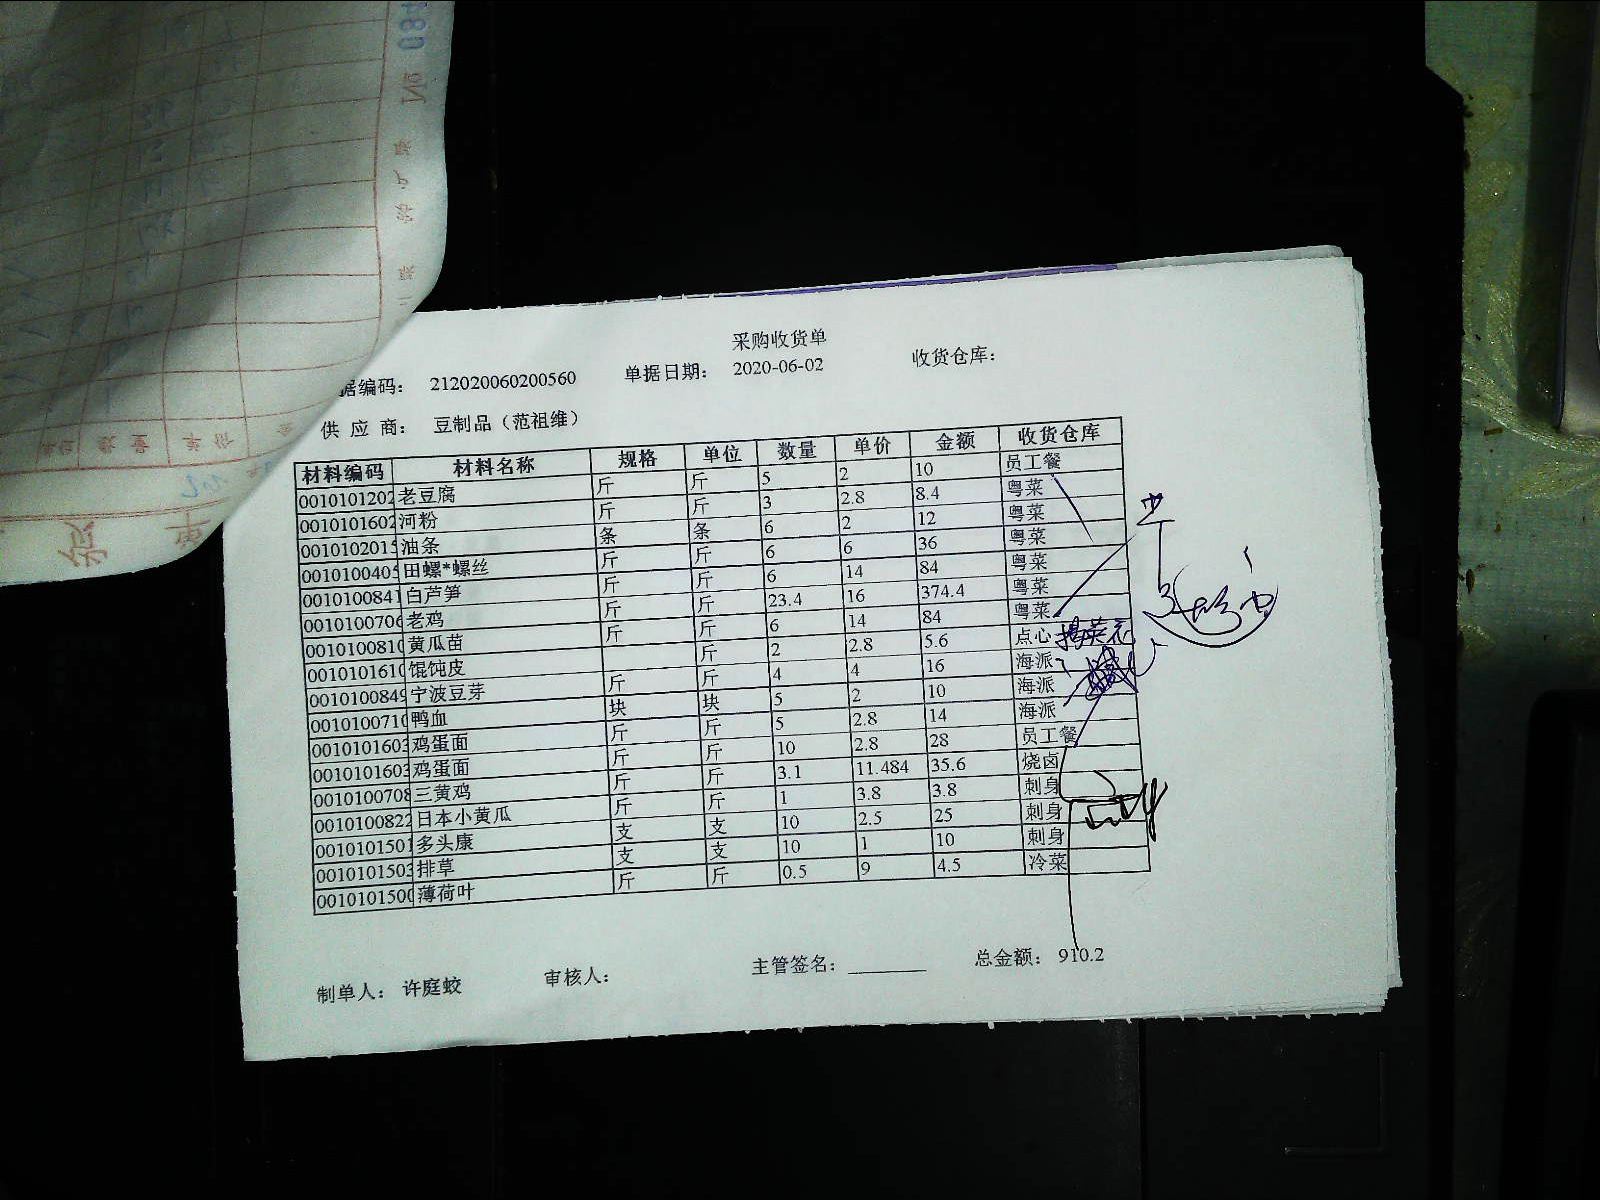 采购收货单
据编码： 212020060200560 单据日期： 2020-06-02 收货仓库：
供 应 商： 豆制品（范祖维）
材料编码 材料名称 规格 单位 数量 单价 金额 收货仓库
0010101202 老豆腐 斤 斤 5 2 10 员工餐
0010101602 河粉 斤 斤 3 2.8 8.4 粤菜
001010201 油条 条 条 6 2 12 粤菜
001010040 田螺*螺丝 斤 斤 6 6 36 粤菜
0010100841 白芦笋 斤 斤 6 14 84 粤菜
001010070 老鸡 斤 斤 23.4 16 374.4 粤菜
001010081 黄瓜苗 斤 斤 6 14 84 粤菜
001010161 馄饨皮 斤 2 2.8 5.6 点心
001010084 宁波豆芽 斤 斤 4 4 16 海派
001010071 鸭血 块 块 5 2 10 海派
0010101603 鸡蛋面 斤 斤 5 2.8 14 海派
0010101603 鸡蛋面 斤 斤 10 2.8 28 员工餐
0010100708 三黄鸡 斤 斤 3.1 11.484 35.6 烧卤
0010100822 日本小黄瓜 斤 斤 1 3.8 3.8 刺身
0010101501 多头康 支 支 10 2.5 25 刺身
0010101503 排草 支 支 10 1 10 刺身
001010150 薄荷叶 斤 斤 0.5 9 4.5 冷菜
制单人： 许庭蛟 审核人： 主管签名： 总金额： 910.2